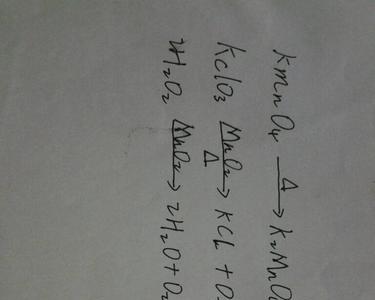 KMnO₄ —Δ→ K₂MnO
KClO₃ —MnO₂/Δ→ KCl + O
2H₂O₂ —MnO₂→ 2H₂O + O₂